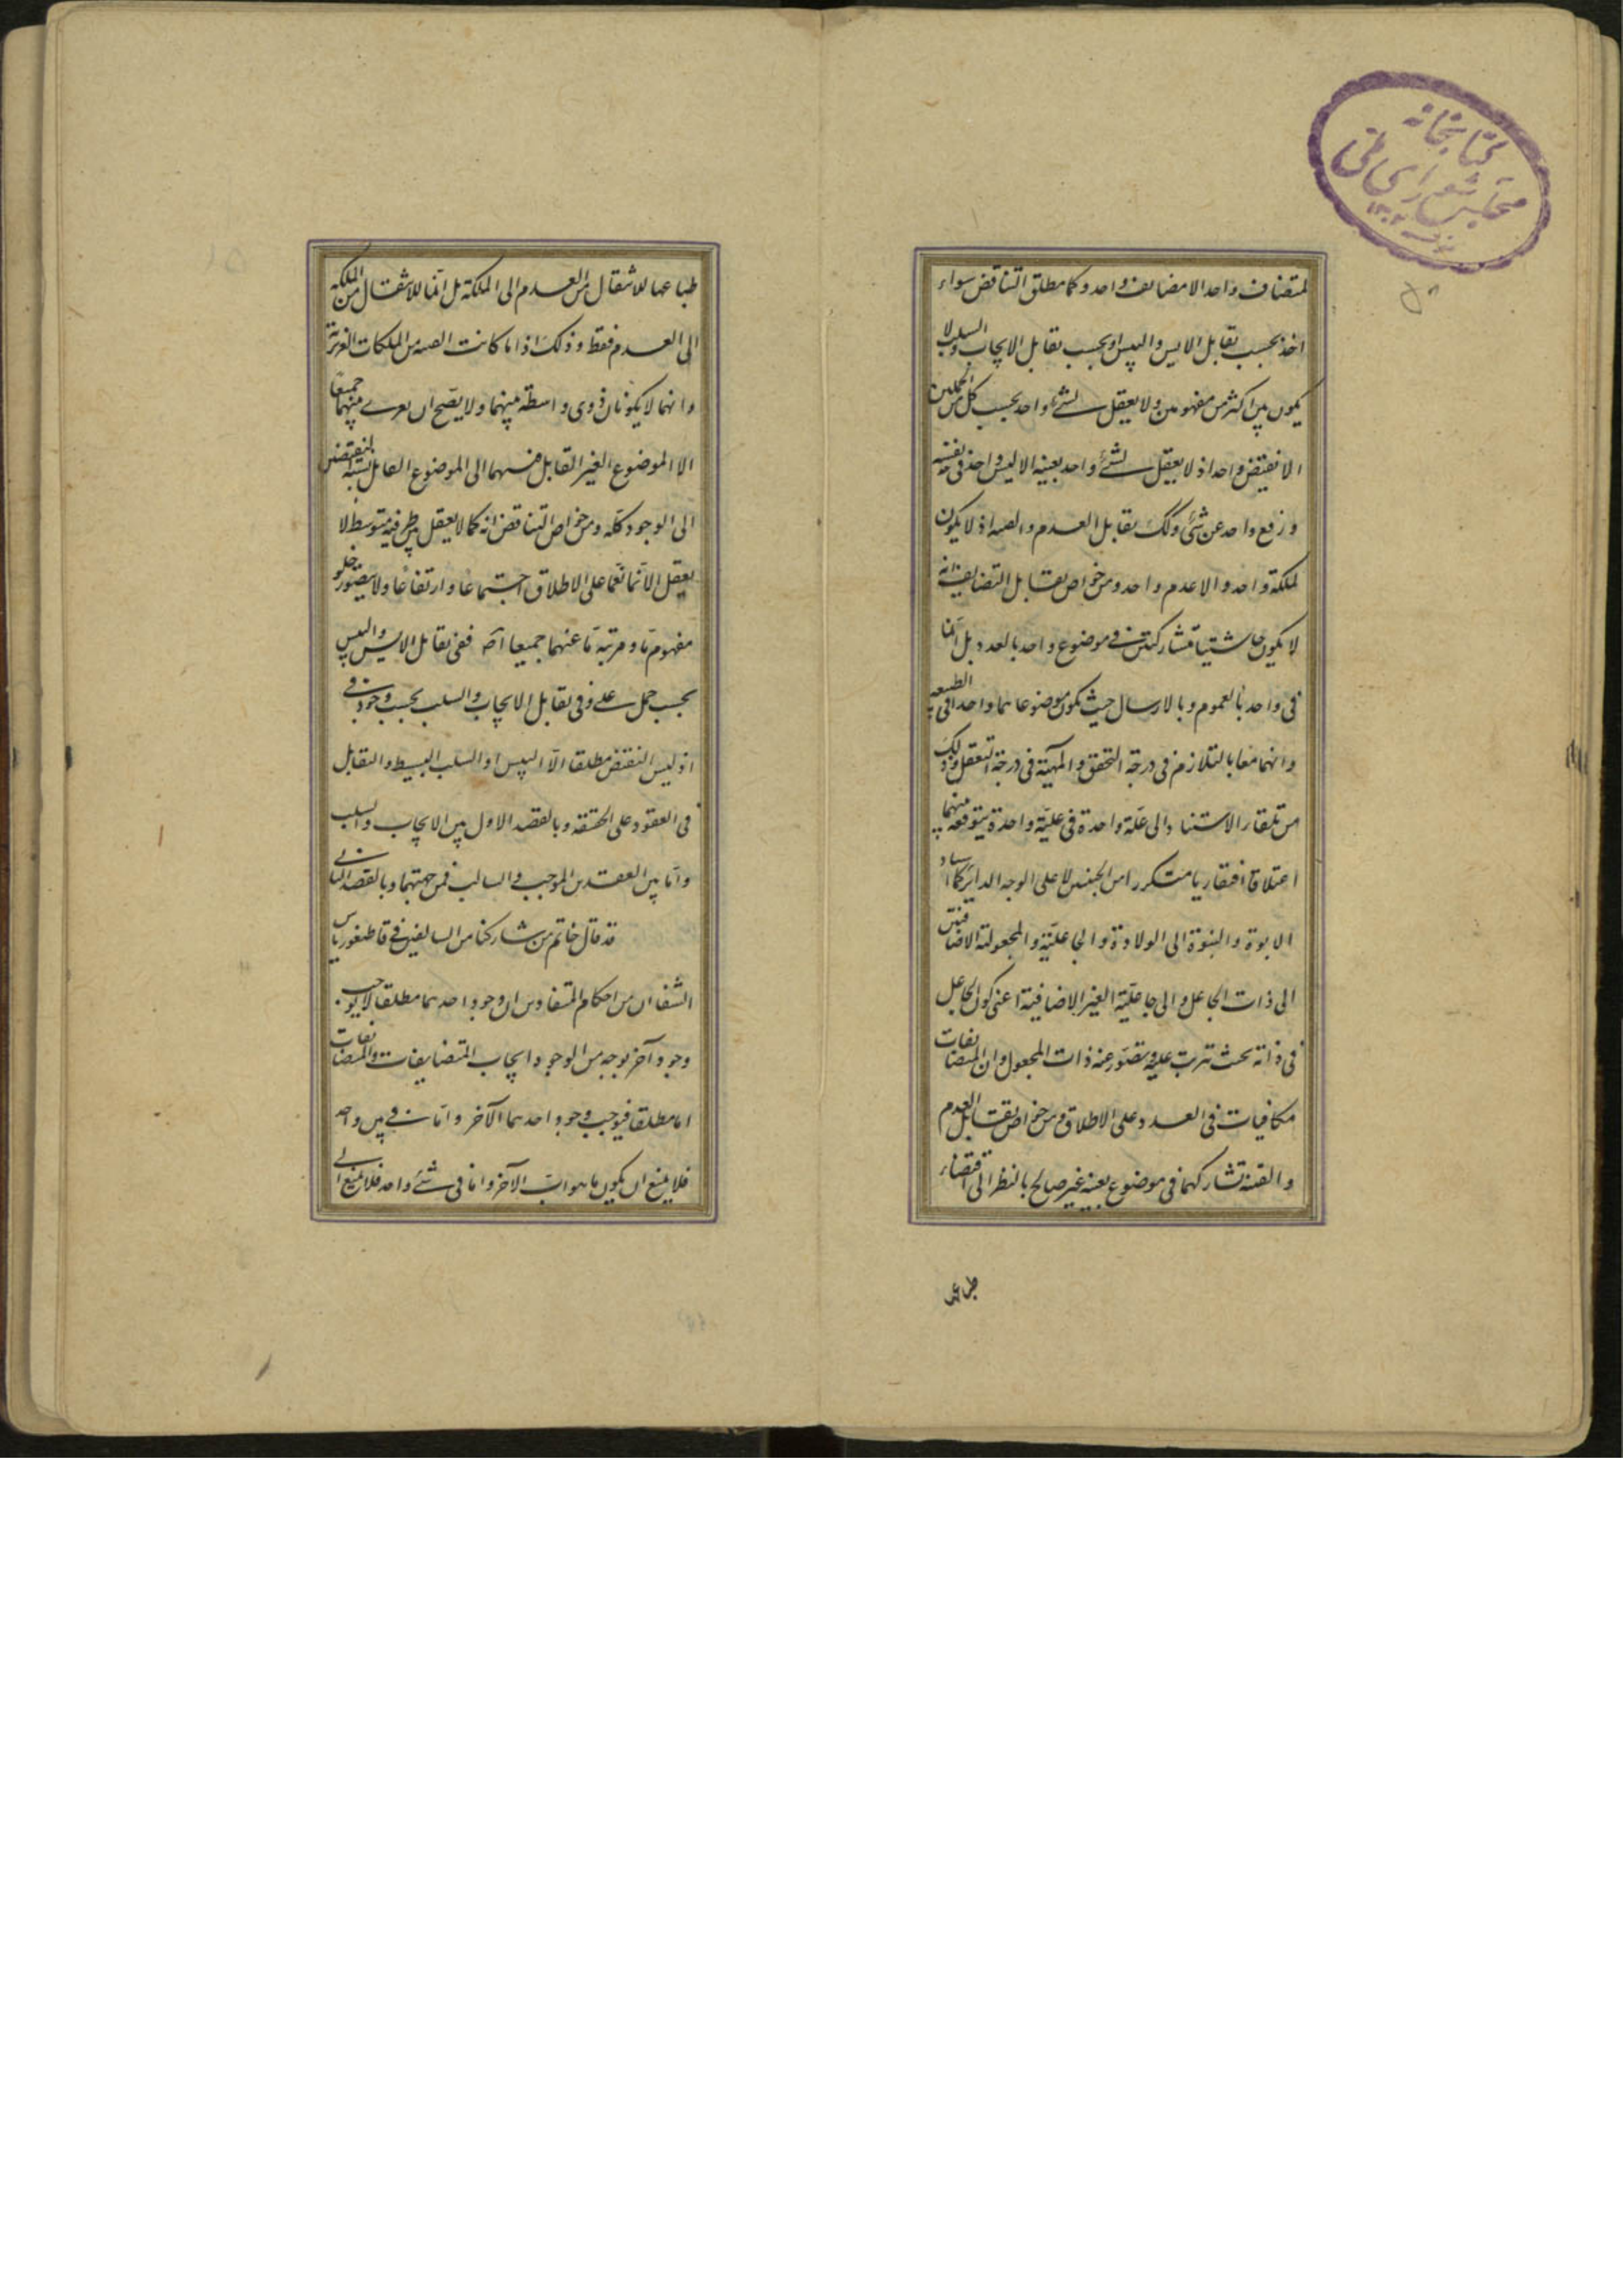 كتابخانه
مجلس شورای ملی
لمتضايف واحد الا مضايف واحد وكما مطلق التناقض سواء
اخذ بحسب تقابل الايس والليس او بحسب تقابل الايجاب والسلب لا
يكون بين اكثر من مفهومين ولا يعقل لشئ واحد بحسب كل من الحملين
الا نقيض واحد اذ لا يعقل لشئ واحد بعينه الا ليس واحد في نفسه
ورفع واحد عن شئ وكك تقابل العدم والقنية اذ لا يكون
لملكة واحدة الا عدم واحد ومن خواص تقابل التضايف انه
لا يكون حاشيتاه متشاركتين في موضوع واحد بالعدد بل انما
في واحد بالعموم وبالارسال حيث يكون موضوعاهما واحدا في الطبيعة
وانهما معا بالتلازم في درجة التحقق والمهية في درجة التعقل وذلك
من تلقاء الاستناد الى علة واحدة في علية واحدة يتوقعه بينهما
اعتلاقا افتقاريا متكررا من الجنس لا على الوجه الداير كما
الابوة والبنوة الى الولادة والجاعلية والمجعولية الاضافيتين
الى ذات الجاعل والى جاعلية الغير الاضافية اعني كون الجاعل
في ذاته بحيث تترتب عليه وتصور عنه ذات المجعول وان المتضايفات
مكافيات في العدد على الاطلاق ومن خواص تقابل العدم
والقنية تشاركهما في موضوع بعينه غير صالح بالنظر الى اقتضاء
طباعها للانتقال من العدم الى الملكة بل انما للانتقال من الملكة
الى العدم فقط وذلك اذا ما كانت القنية من الملكات الغريزية
وانهما لا يكونان ذوى واسطة بينهما ولا يصح ان يعرى عنهما جميعا
الا الموضوع الغير القابل منسهما الى الموضوع القابل نسبة النقيضين
الى الوجود كله ومن خواص التناقض انه كما لا يعقل بين طرفيه متوسط لا
يعقل الا تمانعهما على الاطلاق اجتماعا وارتفاعا ولا يتصور خلو
مفهوم ما ومرتبة ما عنهما جميعا اصه ففي تقابل الايس والليس
بحسب حمل على وفي تقابل الايجاب والسلب بحسب وجود في
اذ ليس النقيض مطلقا الا الليس او السلب البسيط والتقابل
في العقود على الحقيقة وبالقصد الاول بين الايجاب والسلب
واما بين العقدين الموجب والسالب فمن جهتهما وبالقصد الثاني
قد قال خاتم من شاركنا من السالفين في قاطيغورياس
الشفا ان من احكام المتضادين ان وجود احدهما مطلقا لا يوجب
وجود آخر بوجه من الوجوه ايجاب المتضايفات والمتضايفات
اما مطلقا فيوجب وجود احدهما الآخر واما في بين واحد
فلا يمنع ان يكون ما هو اب الآخر واما في شئ واحد فلا يمنع
طباعها